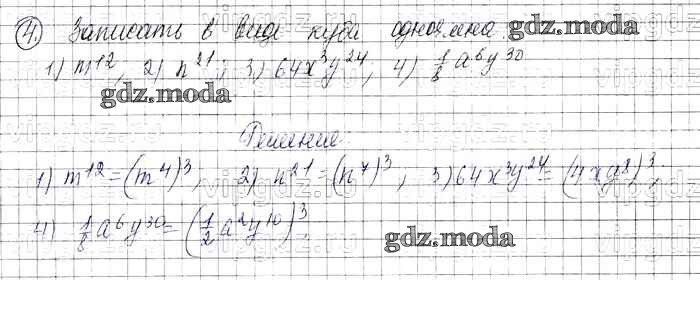 4. Записать в виде куба одночлена. gdz.moda
1) m¹²; 2) n²¹; 3) 64x³y²⁴; 4) 1/8 a⁶y³⁰
gdz.moda
Решение
1) m¹²=(m⁴)³, 2) n²¹=(n⁷)³, 3) 64x³y²⁴=(4xy⁸)³,
4) 1/8 a⁶y³⁰=(1/2 a²y¹⁰)³.
gdz.moda